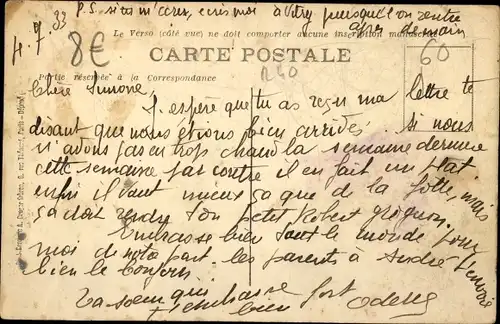 4.9.33 P.S. si tu m'écris, écris moi à Vitry puisque l'on rentre
après demain
8€
Le Verso (côté vue) ne doit comporter aucune inscription manuscrite
CARTE POSTALE
60
R60
Partie réservée à la Correspondance
Chère Simone,
J'espère que tu as reçu ma lettre te
disant que nous étions bien arrivés. si nous
n'avons pas eu trop chaud la semaine dernière
cette semaine par contre il en fait un plat
enfin il vaut mieux ça que de la flotte, mais
ça doit rendre ton petit Robert grognon.
Embrasse bien tout le monde pour
moi de notre part. les parents à André t'envoie
bien le bonjour
Ta soeur qui t'embrasse bien fort
Odette